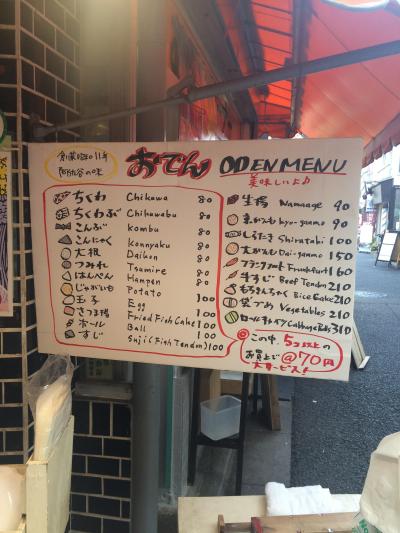 おでん ODEN MENU
美味しいよ♪
の味
ちくわ Chikawa 80
ちくわぶ Chikuwabu 80
こんぶ Kombu 80
こんにゃく Konnyaku 80
大根 Daikon 80
つみれ Tsamire 80
はんぺん Hanpen 80
じゃがいも Potato 100
玉子 Egg 100
さつま揚 Fried Fish Cake 100
ボール Ball 100
すじ Suji (Fish Tendon) 100
生揚 Namaage 90
京がんも kyo-ganmo 90
しらたき Shiratabi 100
大がんも Dai-ganmo 150
フランクフルト Frunkfurt 160
牛すじ Beef Tendon 210
もちきんちゃく Rice Cake 210
袋づめ Vegetables 210
ロールキャベツ Cabbage Rolls 310
◎この中、5コ以上の
お買上で@70円
大サービス!